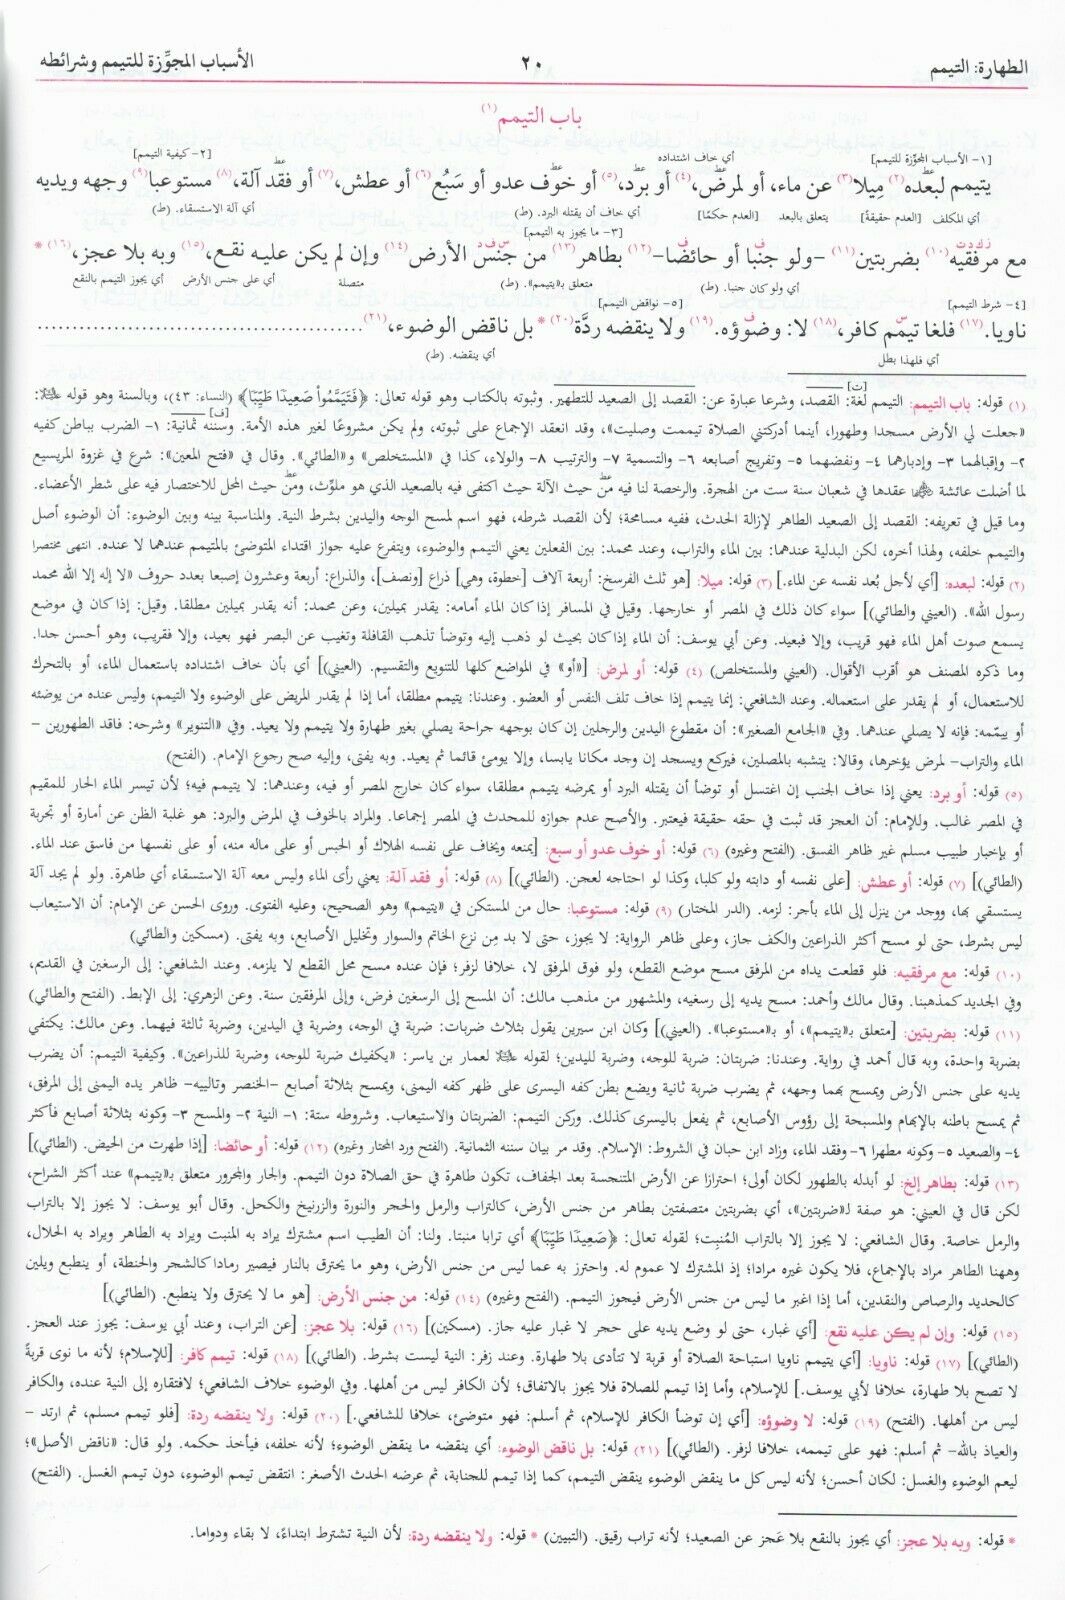 الطهارة: التيمم ٢٠ الأسباب المجوِّزة للتيمم وشرائطه
باب التيمم (١)
[١- الأسباب المجوّزة للتيمم] أي خاف اشتداده [٢- كيفية التيمم]
يتيمم لبعده(٢) مِيلا(٣) عن ماء، أو لمرض،(٤) أو برد،(٥) أو خوف عدو أو سَبُع(٦) أو عطش،(٧) أو فقد آلة،(٨) مستوعبا(٩) وجهه ويديه
أي المكلف [العدم حقيقة] يتعلق بالبعد [العدم حكمًا] أي خاف أن يقتله البرد. (ط) أي آلة الاستسقاء. (ط)
[٣- ما يجوز به التيمم]
مع مرفقيه(١٠) بضربتين(١١) -ولو جنبا أو حائضا-(١٢) بطاهر(١٣) من جنس الأرض(١٤) وإن لم يكن عليه نقع،(١٥) وبه بلا عجز،(١٦)*
أي ولو كان جنبا. (ط) متعلق بـ«يتيمم». (ط) متصلة أي على جنس الأرض أي يجوز التيمم بالنقع
[٤- شرط التيمم] [٥- نواقض التيمم]
ناويا.(١٧) فلغا تيمّم كافر،(١٨) لا: وضوؤه.(١٩) ولا ينقضه ردّة(٢٠)* بل ناقض الوضوء،(٢١)
أي فلهذا بطل أي ينقضه. (ط)
(١) قوله: باب التيمم: التيمم لغة: القصد، وشرعا عبارة عن: القصد إلى الصعيد للتطهير. وثبوته بالكتاب وهو قوله تعالى: ﴿فَتَيَمَّمُواْ صَعِيدٗا طَيِّبٗا﴾ (النساء: ٤٣)، وبالسنة وهو قوله ﷺ:
«جعلت لي الأرض مسجدا وطهورا، أينما أدركتني الصلاة تيممت وصليت»، وقد انعقد الإجماع على ثبوته، ولم يكن مشروعًا لغير هذه الأمة. وسننه ثمانية: ١- الضرب بباطن كفيه
٢- وإقبالهما ٣- وإدبارهما ٤- ونفضهما ٥- وتفريج أصابعه ٦- والتسمية ٧- والترتيب ٨- والولاء، كذا في «المستخلص» و«الطائي». وقال في «فتح المعين»: شرع في غزوة المريسيع
لما أضلت عائشة رضي الله عنها عقدها في شعبان سنة ست من الهجرة. والرخصة لنا فيه من حيث الآلة حيث اكتفى فيه بالصعيد الذي هو ملوّث، ومن حيث المحل للاختصار فيه على شطر الأعضاء.
وما قيل في تعريفه: القصد إلى الصعيد الطاهر لإزالة الحدث، ففيه مسامحة؛ لأن القصد شرطه، فهو اسم لمسح الوجه واليدين بشرط النية. والمناسبة بينه وبين الوضوء: أن الوضوء أصل
والتيمم خلفه، ولهذا أخره، لكن البدلية عندهما: بين الماء والتراب، وعند محمد: بين الفعلين يعني التيمم والوضوء، ويتفرع عليه جواز اقتداء المتوضئ بالمتيمم عندهما لا عنده. انتهى مختصرا
(٢) قوله: لبعده: [أي لأجل بُعد نفسه عن الماء.] (٣) قوله: ميلا: [هو ثلث الفرسخ: أربعة آلاف [خطوة، وهي] ذراع [ونصف]، والذراع: أربعة وعشرون إصبعا بعدد حروف «لا إله إلا الله محمد
رسول الله». (العيني والطائي)] سواء كان ذلك في المصر أو خارجها. وقيل في المسافر إذا كان الماء أمامه: يقدر بميلين، وعن محمد: أنه يقدر بميلين مطلقا. وقيل: إذا كان في موضع
يسمع صوت أهل الماء فهو قريب، وإلا فبعيد. وعن أبي يوسف: أن الماء إذا كان بحيث لو ذهب إليه وتوضأ تذهب القافلة وتغيب عن البصر فهو بعيد، وإلا فقريب، وهو أحسن جدا.
وما ذكره المصنف هو أقرب الأقوال. (العيني والمستخلص) (٤) قوله: أو لمرض: [«أو» في المواضع كلها للتنويع والتقسيم. (العيني)] أي بأن خاف اشتداده باستعمال الماء، أو بالتحرك
للاستعمال، أو لم يقدر على استعماله. وعند الشافعي: إنما يتيمم إذا خاف تلف النفس أو العضو. وعندنا: يتيمم مطلقا، أما إذا لم يقدر المريض على الوضوء ولا التيمم، وليس عنده من يوضئه
أو ييمّمه: فإنه لا يصلي عندهما. وفي «الجامع الصغير»: أن مقطوع اليدين والرجلين إن كان بوجهه جراحة يصلي بغير طهارة ولا يتيمم ولا يعيد. وفي «التنوير» وشرحه: فاقد الطهورين –
الماء والتراب- لمرض يؤخرها، وقالا: يتشبه بالمصلين، فيركع ويسجد إن وجد مكانا يابسا، وإلا يومئ قائما ثم يعيد. وبه يفتى، وإليه صح رجوع الإمام. (الفتح)
(٥) قوله: أو برد: يعني إذا خاف الجنب إن اغتسل أو توضأ أن يقتله البرد أو يمرضه يتيمم مطلقا، سواء كان خارج المصر أو فيه، وعندهما: لا يتيمم فيه؛ لأن تيسر الماء الحار للمقيم
في المصر غالب. وللإمام: أن العجز قد ثبت في حقه حقيقة فيعتبر. والأصح عدم جوازه للمحدث في المصر إجماعا. والمراد بالخوف في المرض والبرد: هو غلبة الظن عن أمارة أو تجربة
أو بإخبار طبيب مسلم غير ظاهر الفسق. (الفتح وغيره) (٦) قوله: أو خوف عدو أو سبع: [يمنعه ويخاف على نفسه الهلاك أو الحبس أو على ماله منه، أو على نفسها من فاسق عند الماء.
(الطائي)] (٧) قوله: أو عطش: [على نفسه أو دابته ولو كلبا، وكذا لو احتاجه لعجن. (الطائي)] (٨) قوله: أو فقد آلة: يعني رأى الماء وليس معه آلة الاستسقاء أي طاهرة. ولو لم يجد آلة
يستسقي بها، ووجد من ينزل إلى الماء بأجر: لزمه. (الدر المختار) (٩) قوله: مستوعبا: حال من المستكن في «يتيمم» وهو الصحيح، وعليه الفتوى. وروى الحسن عن الإمام: أن الاستيعاب
ليس بشرط، حتى لو مسح أكثر الذراعين والكف جاز، وعلى ظاهر الرواية: لا يجوز، حتى لا بد مِن نزع الخاتم والسوار وتخليل الأصابع، وبه يفتى. (مسكين والطائي)
(١٠) قوله: مع مرفقيه: فلو قطعت يداه من المرفق مسح موضع القطع، ولو فوق المرفق لا، خلافا لزفر؛ فإن عنده مسح محل القطع لا يلزمه. وعند الشافعي: إلى الرسغين في القديم،
وفي الجديد كمذهبنا. وقال مالك وأحمد: مسح يديه إلى رسغيه، والمشهور من مذهب مالك: أن المسح إلى الرسغين فرض، وإلى المرفقين سنة. وعن الزهري: إلى الإبط. (الفتح والطائي)
(١١) قوله: بضربتين: [متعلق بـ«يتيمم»، أو بـ«مستوعبا». (العيني)] وكان ابن سيرين يقول بثلاث ضربات: ضربة في الوجه، وضربة في اليدين، وضربة ثالثة فيهما. وعن مالك: يكتفي
بضربة واحدة، وبه قال أحمد في رواية. وعندنا: ضربتان: ضربة للوجه، وضربة لليدين؛ لقوله ﷺ لعمار بن ياسر: «يكفيك ضربة للوجه، وضربة للذراعين». وكيفية التيمم: أن يضرب
يديه على جنس الأرض ويمسح بهما وجهه، ثم يضرب ضربة ثانية ويضع بطن كفه اليسرى على ظهر كفه اليمنى، ويمسح بثلاثة أصابع –الخنصر وتالييه- ظاهر يده اليمنى إلى المرفق،
ثم يمسح باطنه بالإبهام والمسبحة إلى رؤوس الأصابع، ثم يفعل باليسرى كذلك. وركن التيمم: الضربتان والاستيعاب. وشروطه ستة: ١- النية ٢- والمسح ٣- وكونه بثلاثة أصابع فأكثر
٤- والصعيد ٥- وكونه مطهرا ٦- وفقد الماء، وزاد ابن حبان في الشروط: الإسلام. وقد مر بيان سننه الثمانية. (الفتح ورد المحتار وغيره) (١٢) قوله: أو حائضا: [إذا طهرت من الحيض. (الطائي)]
(١٣) قوله: بطاهر إلخ: لو أبدله بالطهور لكان أولى؛ احترازا عن الأرض المتنجسة بعد الجفاف، تكون طاهرة في حق الصلاة دون التيمم. والجار والمجرور متعلق بـ«يتيمم» عند أكثر الشراح،
لكن قال في العيني: هو صفة لـ«ضربتين»، أي بضربتين متصفتين بطاهر من جنس الأرض، كالتراب والرمل والحجر والنورة والزرنيخ والكحل. وقال أبو يوسف: لا يجوز إلا بالتراب
والرمل خاصة. وقال الشافعي: لا يجوز إلا بالتراب المُنبِت؛ لقوله تعالى: ﴿صَعِيدٗا طَيِّبٗا﴾ أي ترابا منبتا. ولنا: أن الطيب اسم مشترك يراد به المنبت ويراد به الطاهر ويراد به الحلال،
وههنا الطاهر مراد بالإجماع، فلا يكون غيره مرادا؛ إذ المشترك لا عموم له. واحترز به عما ليس من جنس الأرض، وهو ما يحترق بالنار فيصير رمادا كالشجر والحنطة، أو ينطبع ويلين
كالحديد والرصاص والنقدين، أما إذا اغبر ما ليس من جنس الأرض فيجوز التيمم. (الفتح وغيره) (١٤) قوله: من جنس الأرض: [هو ما لا يحترق ولا ينطبع. (الطائي)]
(١٥) قوله: وإن لم يكن عليه نقع: [أي غبار، حتى لو وضع يديه على حجر لا غبار عليه جاز. (مسكين)] (١٦) قوله: بلا عجز: [عن التراب، وعند أبي يوسف: يجوز عند العجز.
(الطائي)] (١٧) قوله: ناويا: [أي يتيمم ناويا استباحة الصلاة أو قربة لا تتأدى بلا طهارة. وعند زفر: النية ليست بشرط. (الطائي)] (١٨) قوله: تيمم كافر: [للإسلام؛ لأنه ما نوى قربةً
لا تصح بلا طهارة، خلافا لأبي يوسف.] للإسلام، وأما إذا تيمم للصلاة فلا يجوز بالاتفاق؛ لأن الكافر ليس من أهلها. وفي الوضوء خلاف الشافعي؛ لافتقاره إلى النية عنده، والكافر
ليس من أهلها. (الفتح) (١٩) قوله: لا وضوؤه: [أي إن توضأ الكافر للإسلام، ثم أسلم: فهو متوضئ، خلافا للشافعي.] (٢٠) قوله: ولا ينقضه ردة: [فلو تيمم مسلم، ثم ارتد –
والعياذ بالله– ثم أسلم: فهو على تيممه، خلافا لزفر. (الطائي)] (٢١) قوله: بل ناقض الوضوء: أي ينقضه ما ينقض الوضوء؛ لأنه خلفه، فيأخذ حكمه. ولو قال: «ناقض الأصل»؛
ليعم الوضوء والغسل: لكان أحسن؛ لأنه ليس كل ما ينقض الوضوء ينقض التيمم، كما إذا تيمم للجنابة، ثم عرضه الحدث الأصغر: انتقض تيمم الوضوء، دون تيمم الغسل. (الفتح)
* قوله: وبه بلا عجز: أي يجوز بالنقع بلا عَجز عن الصعيد؛ لأنه تراب رقيق. (التبيين) * قوله: ولا ينقضه ردة: لأن النية تشترط ابتداءً، لا بقاء ودواما.